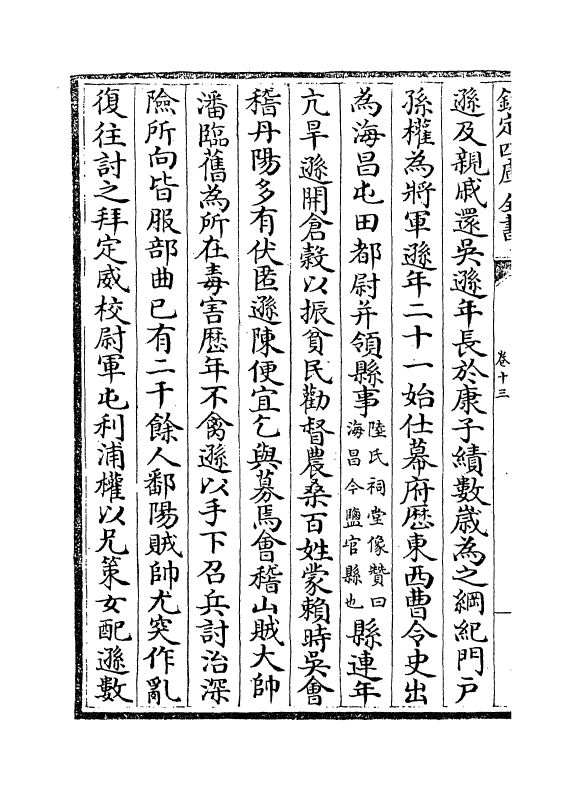 欽定四庫全書
卷十三
遜及親戚還吳遜年長於康子績數歳為之綱紀門户
孫權為將軍遜年二十一始仕幕府歴東西曹令史出
為海昌屯田都尉并領縣事陸氏祠堂像贊曰海昌今鹽官縣也縣連年
亢旱遜開倉穀以振貧民勸督農桑百姓蒙賴時吳會
稽丹陽多有伏匿遜陳便宜乞與募焉會稽山賊大帥
潘臨舊為所在毒害歴年不禽遜以手下召兵討治深
險所向皆服部曲已有二千餘人鄱陽賊帥尤突作亂
復往討之拜定威校尉軍屯利浦權以兄策女配遜數